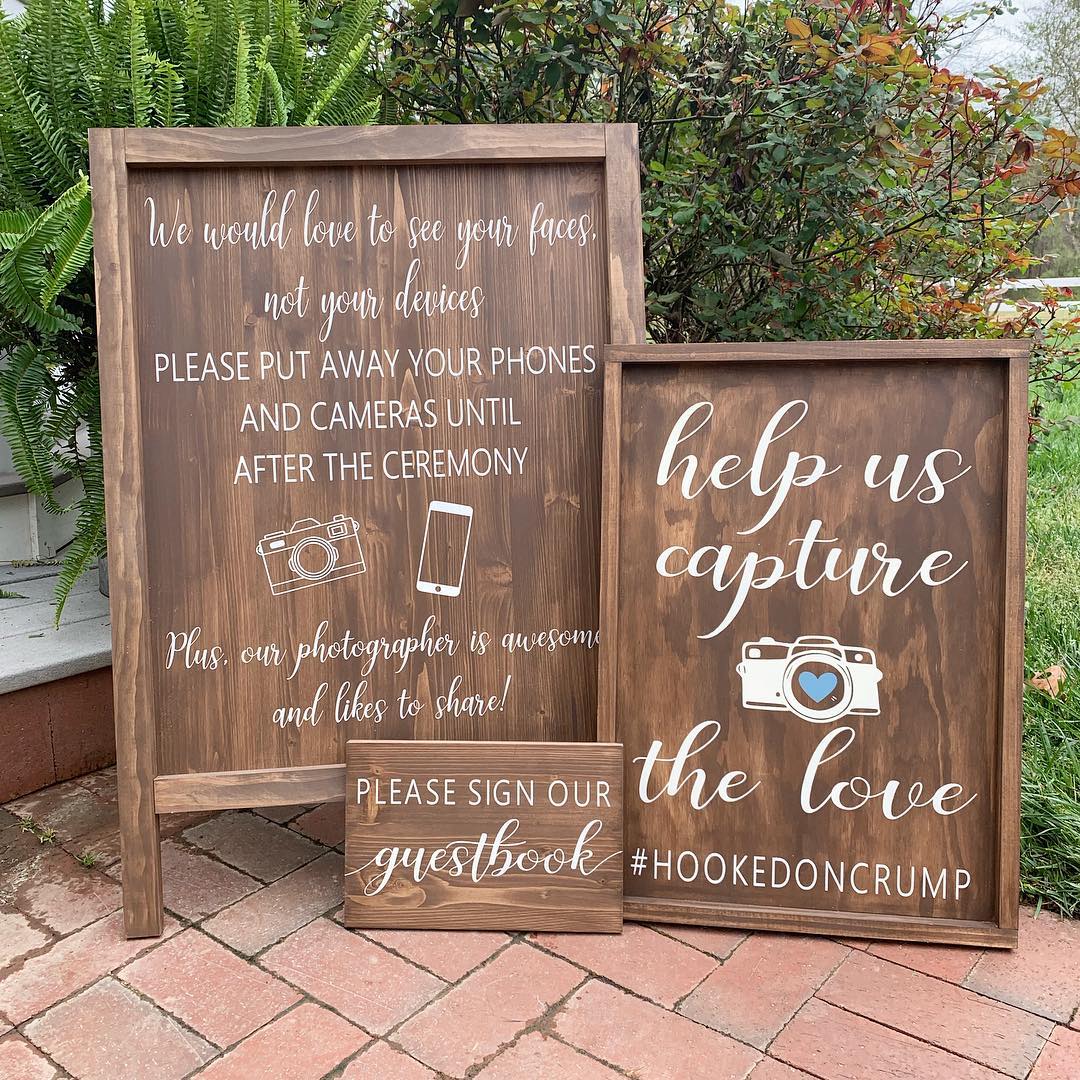 We would love to see your faces,
not your devices
PLEASE PUT AWAY YOUR PHONES
AND CAMERAS UNTIL
AFTER THE CEREMONY
Plus, our photographer is awesome
and likes to share!
PLEASE SIGN OUR
guestbook
help us
capture
the love
#HOOKEDONCRUMP